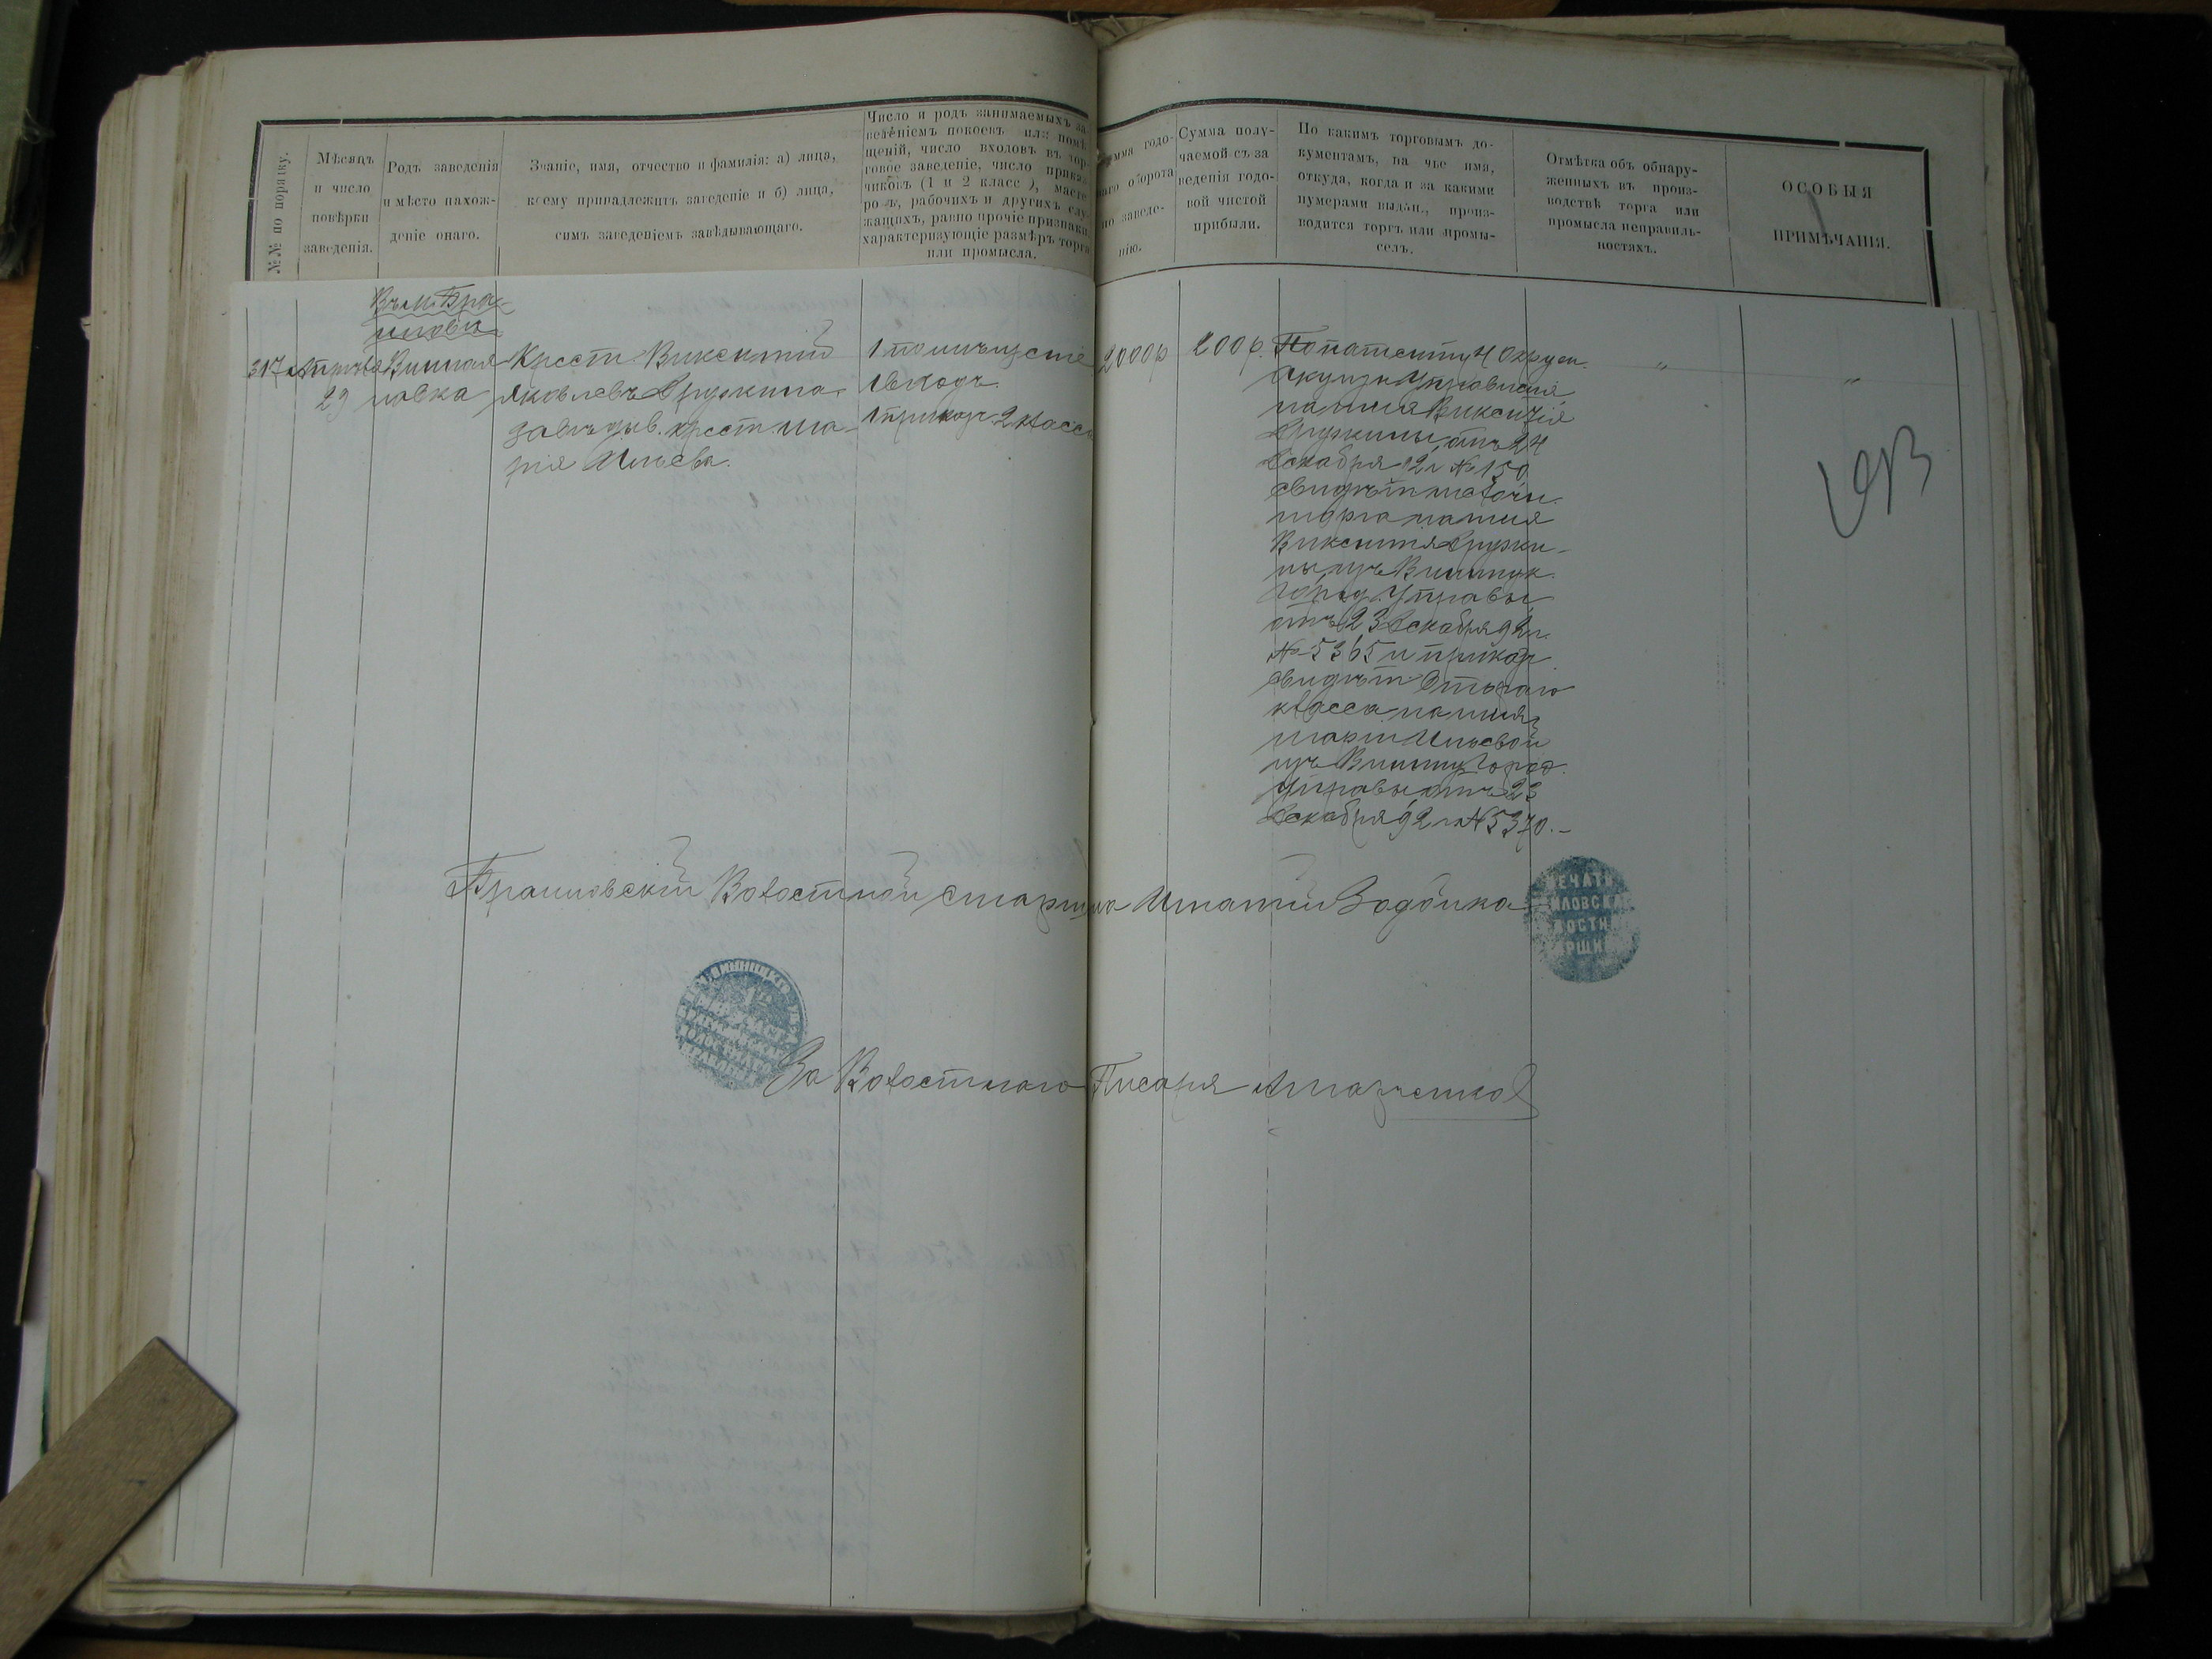 №№ по порядку.
Мѣсяцъ
и число
повѣрки
заведенія.
Родъ заведенія
и мѣсто нахож-
деніе онаго.
Званіе, имя, отчество и фамилія: а) лица,
коему принадлежитъ заведеніе и б) лица,
симъ заведеніемъ завѣдывающаго.
Число и родъ занимаемыхъ за-
веденіемъ покоевъ или помѣ-
щеній, число входовъ въ тор-
говое заведеніе, число прика-
чиковъ (1 и 2 класс ), масте
ро ъ, рабочихъ и другихъ слу-
жащихъ, равно прочіе признаки,
характеризующіе размѣръ торга
или промысла.
мма годо-
ваго оборота
по заведе-
нію.
Сумма полу-
чаемой съ за
веденія годо-
вой чистой
прибыли.
По какимъ торговымъ до-
кументамъ, на чье имя,
откуда, когда и за какими
нумерами выдан., произ-
водится торгъ или промы-
селъ.
Отмѣтка объ обнару-
женныхъ въ произ-
водствѣ торга или
промысла неправиль-
ностяхъ.
ОСОБЫЯ
ПРИМѢЧАНІЯ.
Въ м. Бра-
иловѣ
317 Апрѣля
29
Винная
лавка
Крест. Викентій
Яковлевъ
завѣдыв. крест. Ма-
рія Ильева.
1 помѣщеніе
1 входъ.
1 прикащ. 2 класса
2000 р
200 р.
По патенту 4 Окруж.
Акцизн. Управленія
на имя Викентія
отъ 24
Декабря 92 г № 150
свидѣт. мелочн.
торга на имя
Викентія
изъ Винниц.
Город. Управы
отъ 23 Декабря 92 г.
№ 5365 и прикащ.
свидѣт. Второго
класса на имя
Маріи Ильевой
изъ Винниц. Город.
Управы отъ 23
Декабря 92 г № 5370. -
" "
Браиловскій Волостной Старшина Игнатій
ПЕЧАТЬ
ИЛОВСКА
ЛОСТН
РШИ
За Волостного Писаря